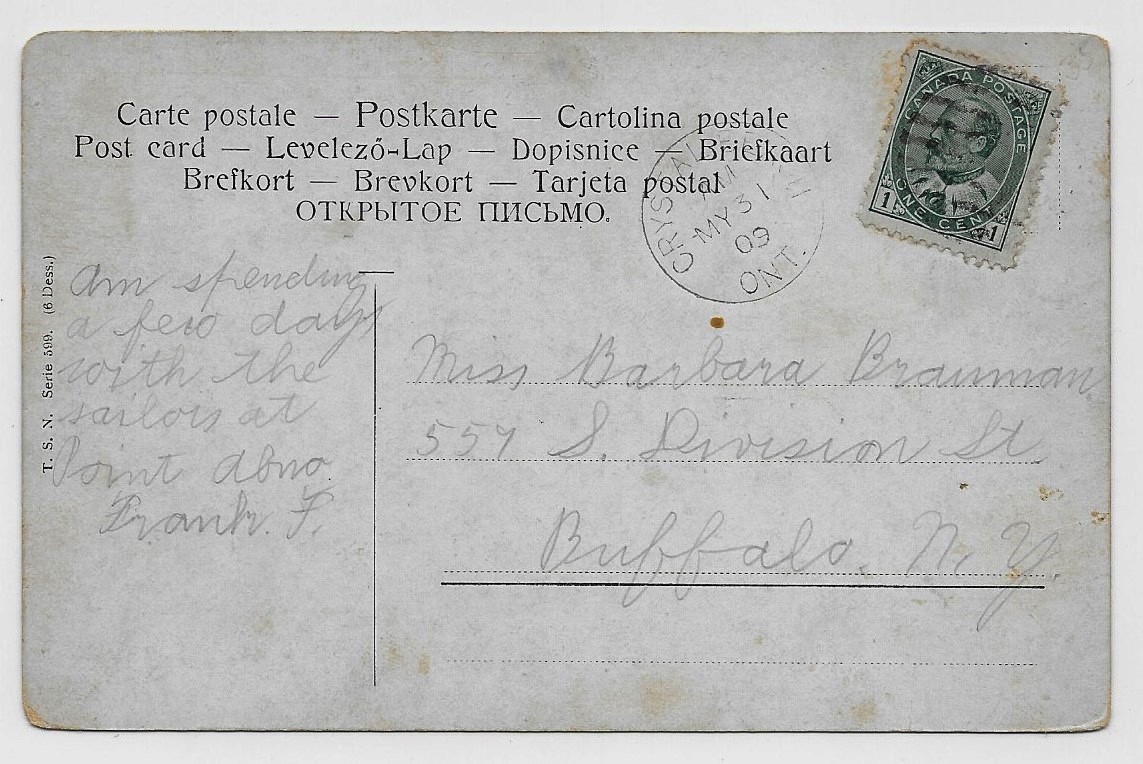 Carte postale — Postkarte — Cartolina postale
Post card — Levelező-Lap — Dopisnice — Briefkaart
Brefkort — Brevkort — Tarjeta postal
ОТКРЫТОЕ ПИСЬМО.
CANADA POSTAGE
1 ONE CENT 1
CRYSTAL
AM
MY 31
09
ONT.
T. S. N. Serie 599. (6 Dess.)
Am spending
a few days
with the
sailors at
Point Abno.
Frank. F.
Miss Barbara Brauman
557 S. Division St
Buffalo. N. Y.